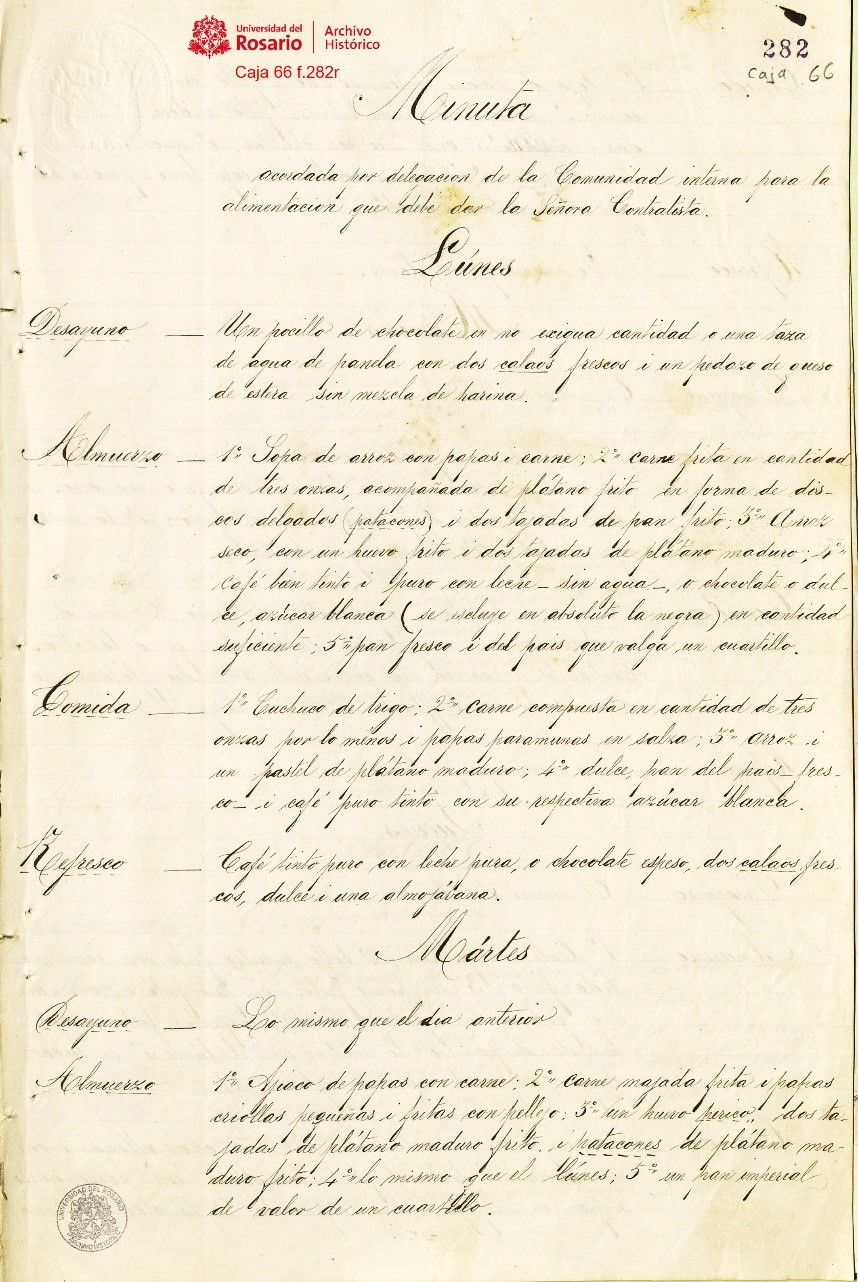 Universidad del
Rosario
Archivo
Histórico
Caja 66 f.282r
282
Caja 66
Minuta
acordada por delegacion de la Comunidad interna para la
alimentacion que debe dar la Señora Contratista.
Lúnes
Desayuno — Un pocillo de chocolate en no exigua cantidad o una taza
de agua de panela con dos calaos frescos i un pedazo de queso
de estera sin mezcla de harina.
Almuerzo — 1º Sopa de arroz con papas i carne; 2º carne frita en cantidad
de tres onzas, acompañada de plátano frito en forma de dis-
cos delgados (patacones) i dos tajadas de pan frito; 3º Arroz
seco, con un huevo frito i dos tajadas de plátano maduro; 4º
Café bien tinto i puro con leche – sin agua –, o chocolate o dul-
ce, azúcar blanca (se escluye en absoluto la negra) en cantidad
suficiente; 5º pan fresco i del pais que valga un cuartillo.
Comida — 1º Cuchuco de trigo; 2º carne compuesta en cantidad de tres
onzas por lo ménos i papas paramunas en salza; 3º arroz i
un pastel de plátano maduro; 4º dulce, pan del pais – fres-
co – i café puro tinto con su respectiva azúcar blanca.
Refresco — Café tinto puro con leche pura, o chocolate espeso, dos calaos fres-
cos, dulce i una almojávana.
Mártes
Desayuno — Lo mismo que el dia anterior
Almuerzo 1º Ajiaco de papas con carne; 2º carne majada frita i papas
criollas pequeñas i fritas con pellejo; 3º un huevo perico, dos ta-
jadas de plátano maduro frito, i patacones de plátano ma-
duro frito; 4º lo mismo que el lúnes; 5º un pan imperial
de valor de un cuartillo.
UNIVERSIDAD DEL ROSARIO
ARCHIVO HISTÓRICO